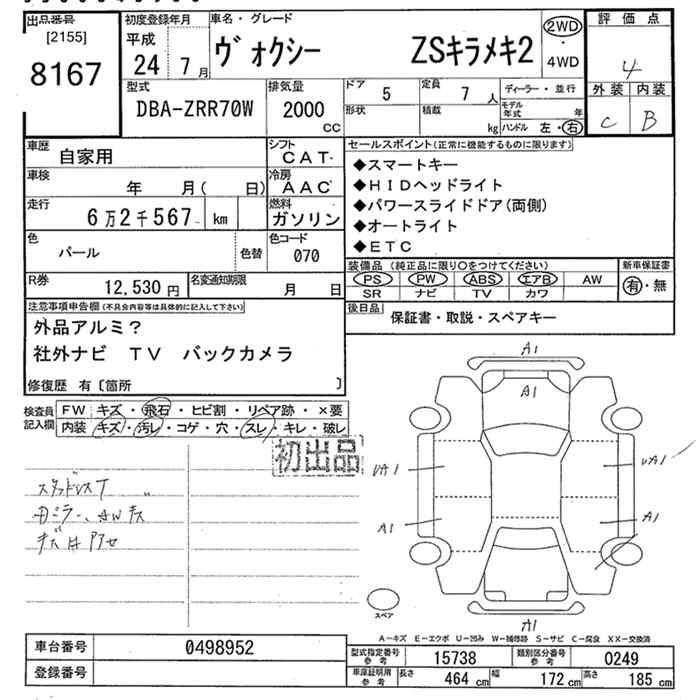 出品番号
[2155]
8167
初度登録年月
平成
24 7月
車名・グレード
ヴォクシー ZSキラメキ2
2WD
・
4WD
評価点
4
外装 内装
C B
型式
DBA-ZRR70W
排気量
2000
CC
ドア 5
形状
定員 7 人
積載 kg
ディーラー・並行
モデル年式 年
ハンドル 左・右
車歴
自家用
シフト
CAT
車検
年 月( 日)
冷房
AAC
走行
6万2千567 km
燃料
ガソリン
色
パール
色替
色コード
070
R券
12,530円
名変通知期限
月 日
セールスポイント(正常に機能するものに限ります)
◆スマートキー
◆HIDヘッドライト
◆パワースライドドア(両側)
◆オートライト
◆ETC
装備品(純正品に限り○をつけてください)
PS PW ABS エアB AW
SR ナビ TV カワ
新車保証書
有・無
後日品
保証書・取説・スペアキー
注意事項申告欄(不具合内容等は具体的に記入して下さい)
外品アルミ?
社外ナビ TV バックカメラ
修復歴 有〔箇所 〕
検査員
記入欄
FW キズ・飛石・ヒビ割・リペア跡・×要
内装 キズ・汚レ・コゲ・穴・スレ・キレ・破レ
初出品
A1
A1
UA1
UA1
A1
A1
A1
スペア
A-キズ E-エクボ U-凹み W-補修跡 S-サビ C-腐食 XX-交換済
車台番号 0498952
登録番号
型式指定番号
参考
15738
類別区分番号
参考
0249
車庫証明用
参考
長さ 464 cm 幅 172 cm 高さ 185 cm